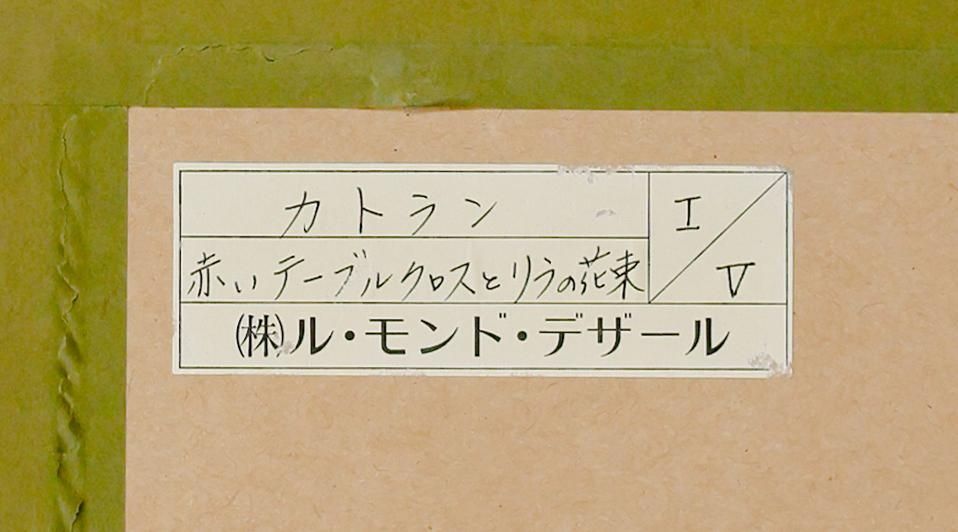 カトラン
I/V
赤いテーブルクロスとリラの花束
㈱ル・モンド・デザール